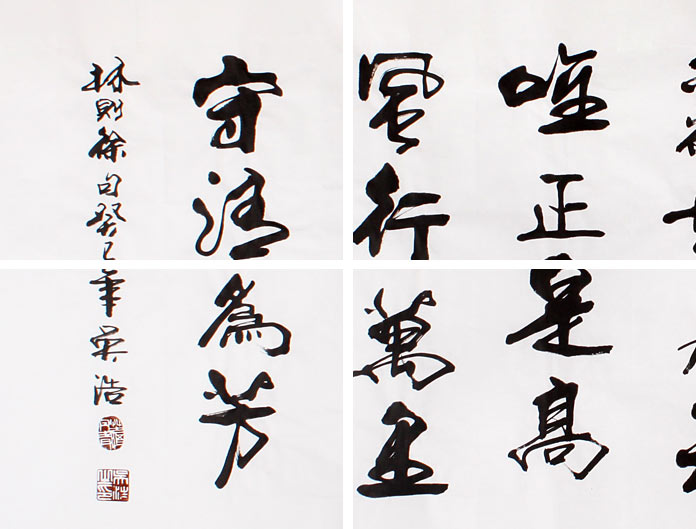 唯正是高
風行萬里
守清為芳
林則徐句癸巳年吳浩